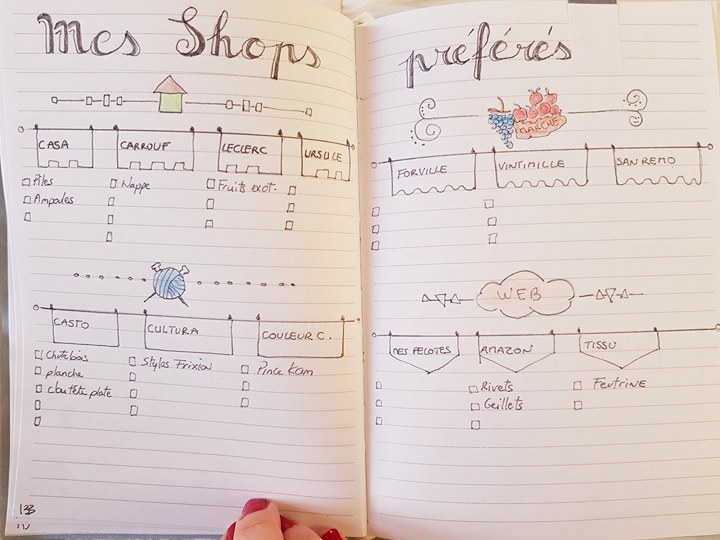 Mes Shops
CASA CARROUF LECLERC URSULE
Piles Nappe Fruits exot.
Ampoules
CASTO CULTURA COULEUR C.
Chute bois Stylos Frixion Pince Kam
planche
clou tête plate
133
préférés
MARCHE
FORVILLE VINTIMILLE SAN REMO
WEB
MES PELOTES AMAZON TISSU
Rivets Feutrine
Œillets